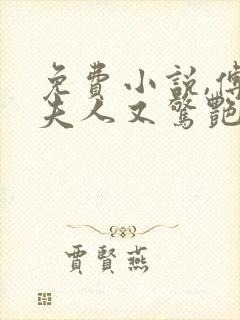 免費小説,傅
夫人又驚艷
賈賢燕